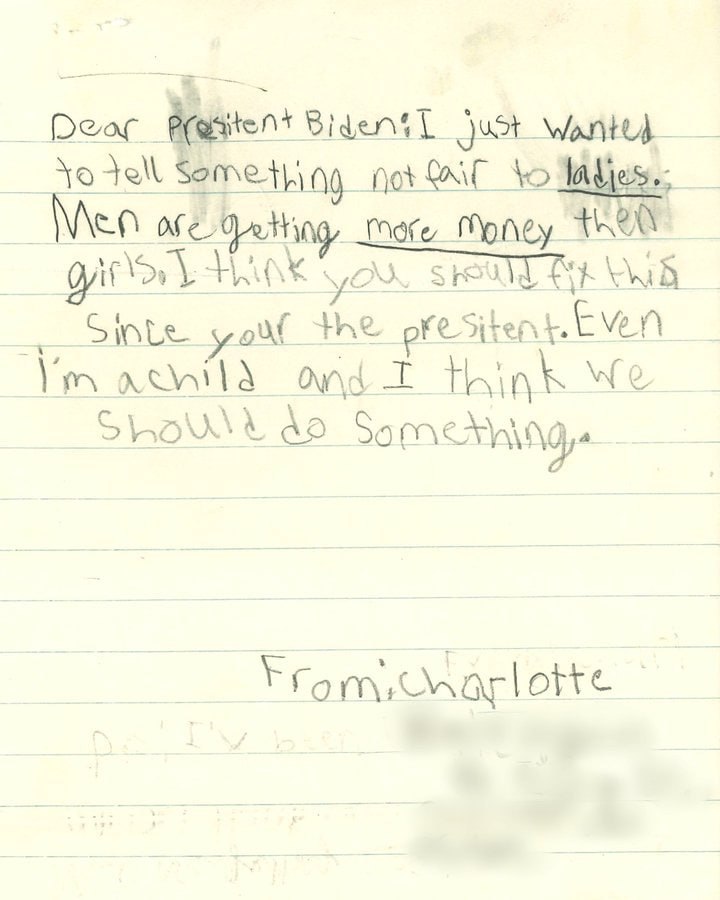 Dear Presitent Biden: I just wanted
to tell something not fair to ladies.
Men are getting more money then
girls. I think you should fix this
Since your the presitent. Even
i'm a child and I think we
should do something.
From: charlotte